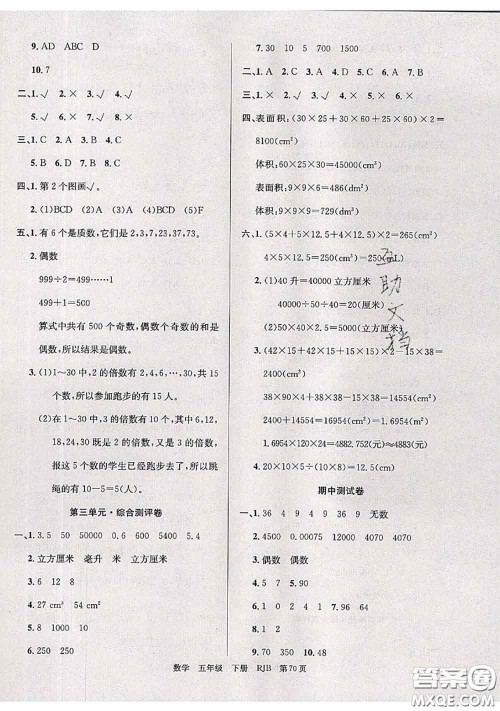 9. AD  ABC  D
10. 7
二、1. √  2. ×  3. √  4. ×  5. √
三、1. A  2. B  3. B  4. C
5. B  6. D  7. B  8. C
四、1. 第2个图画√。
2. (1)BCD  (2)ABCD  (4)BCD  (5)F
五、1. 有6个是质数,它们是2,3,7,23,37,73。
2. 偶数
999÷2=499……1
499+1=500
算式中共有500个奇数,偶数个奇数的和是
偶数,所以结果是偶数。
3. (1)1~30中,2的倍数有2,4,6,…,30,共15
个数,所以参加跑步的有15人。
(2)在1~30中,3的倍数有10个,其中6,12,
18,24,30既是2的倍数,又是3的倍数,
报这5个数的学生已经跑步去了,所以跳
绳的有10-5=5(人)。
第三单元·综合测评卷
一、1. 3.5  50  50000  0.6  5400  5.4
2. 立方厘米  毫升  米  立方分米
3. 8  12  6
4. 27 cm³  54 cm²
5. 8  1000  10
6. 250  250
7. 30  10  5  700  1500
二、1. √  2. √  3. ×  4. ×  5. ×
三、1. C  2. B  3. B  4. A  5. C
四、表面积:(30×25+30×60+25×60)×2=
8100(cm²)
体积:60×25×30=45000(cm³)
表面积:9×9×6=486(cm²)
体积:9×9×9=729(cm³)
六、1. (5×4+5×12.5+4×12.5)×2=265(cm²)
4×5×12.5=250(cm³)=250(mL)
2. (1)40升=40000立方厘米
40000÷50÷40=20(厘米)
(2)50×40×2.5=5000(立方厘米)
3. (1)(42×15+42×16+15×15)×2-15×38=
2400(cm²)
(2)38×9×2+38×15×2+15×9×2=
2400+14554=16954(cm²)
16954(cm²)=1.6954(m²)
1.6954×2880=4882.752(元)≈4883(元)
4. 20×10×5÷80=12.5(cm)
期中测试卷
一、1. 36  4  9  4  9  36  9  无数
2. 4500  0.00075  12000  4070  4.07
3. 偶数  偶数
4. 5  7
5. 7  90
6. 0  8
7. 15
8. 1
9. 70  350
10. 48
互助文档
数学  五年级  下册  RJB  第70页